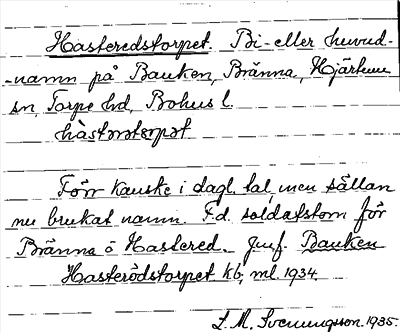 Hasteredstorpet. Bi- eller huvud-
-namn på Bauken, Bränna, Hjärtum
sn, Torpe hd, Bohus l.
hàstərøtsrpət
Förr kanske i dagl. tal, men sällan
nu brukat namn. F.d. soldattorp för
Bränna o Hastered. Jmf. Bauken
Hasterödstorpet kb, ml. 1934.
L. M. Svenungsson. 1935.